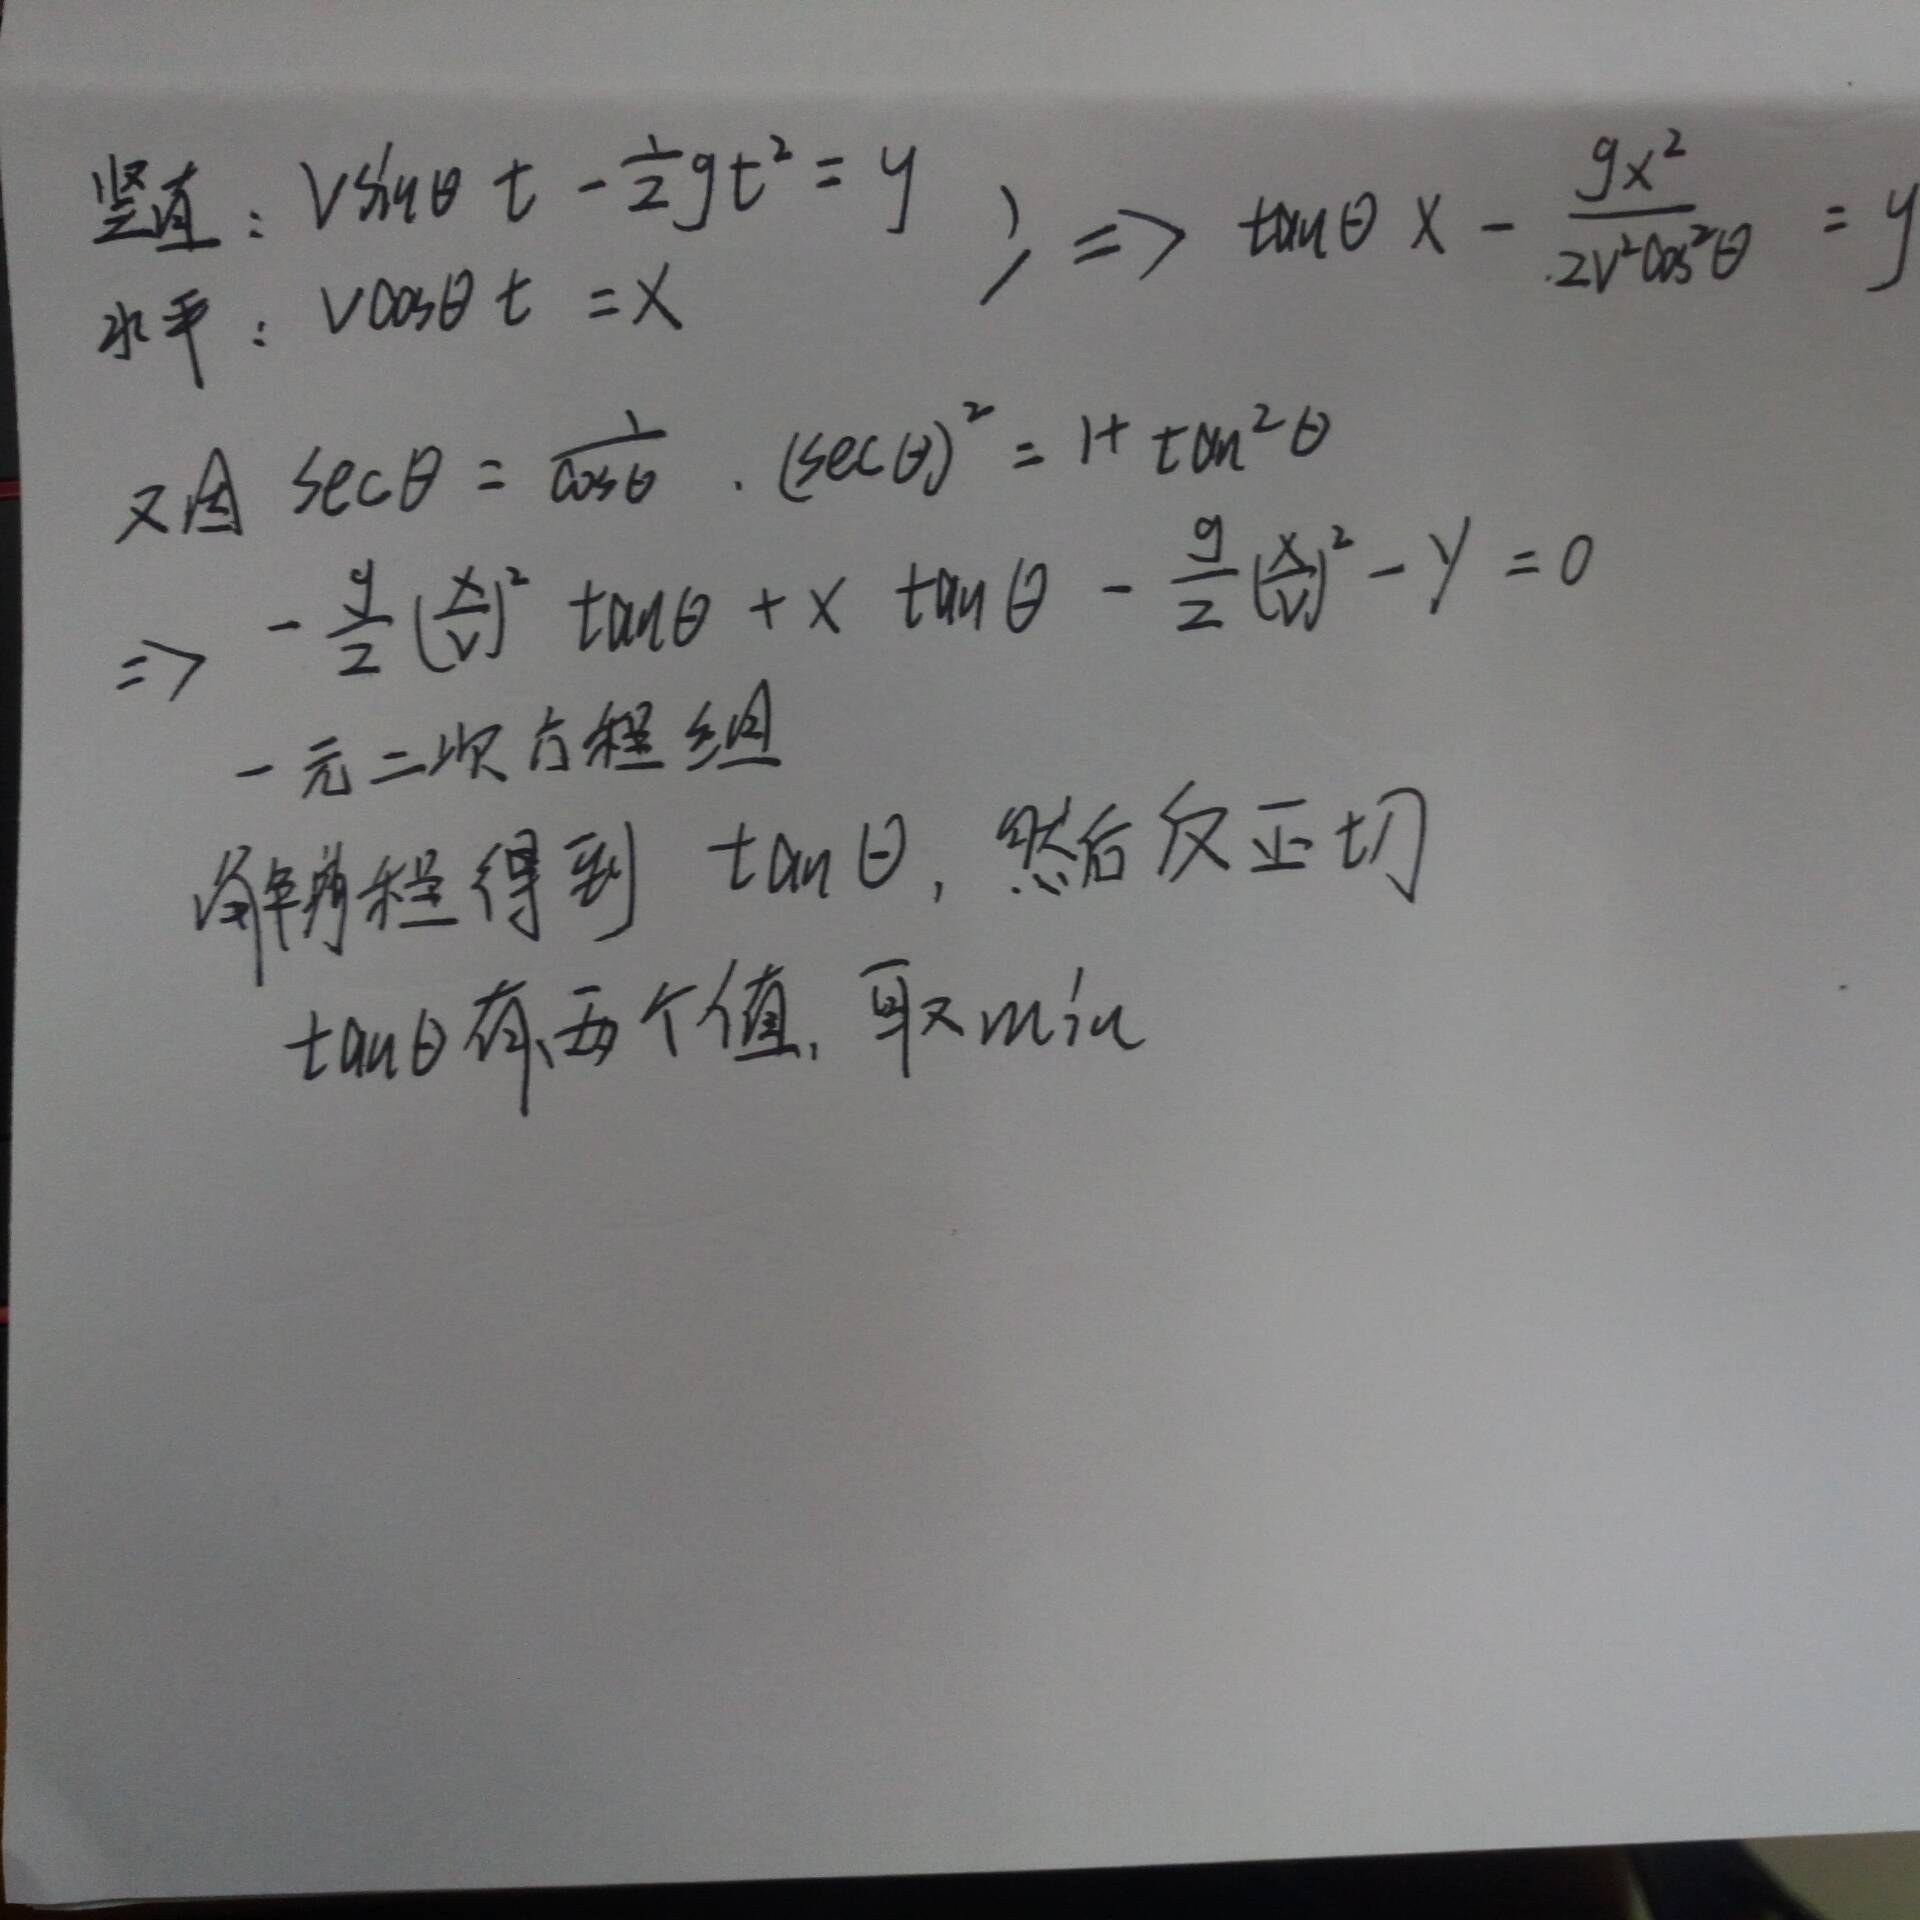 竖直: Vsinθ t - 1/2 gt² = y
水平: Vcosθ t = X
} => tanθ X - gx²/2V²cos²θ = y
又因 secθ = 1/cosθ . (secθ)² = 1+ tan²θ
=> - g/2 (x/v)² tanθ + x tanθ - g/2 (x/v)² - y = 0
一元二次方程组
解方程得到 tanθ, 然后反正切
tanθ有两个值, 取min